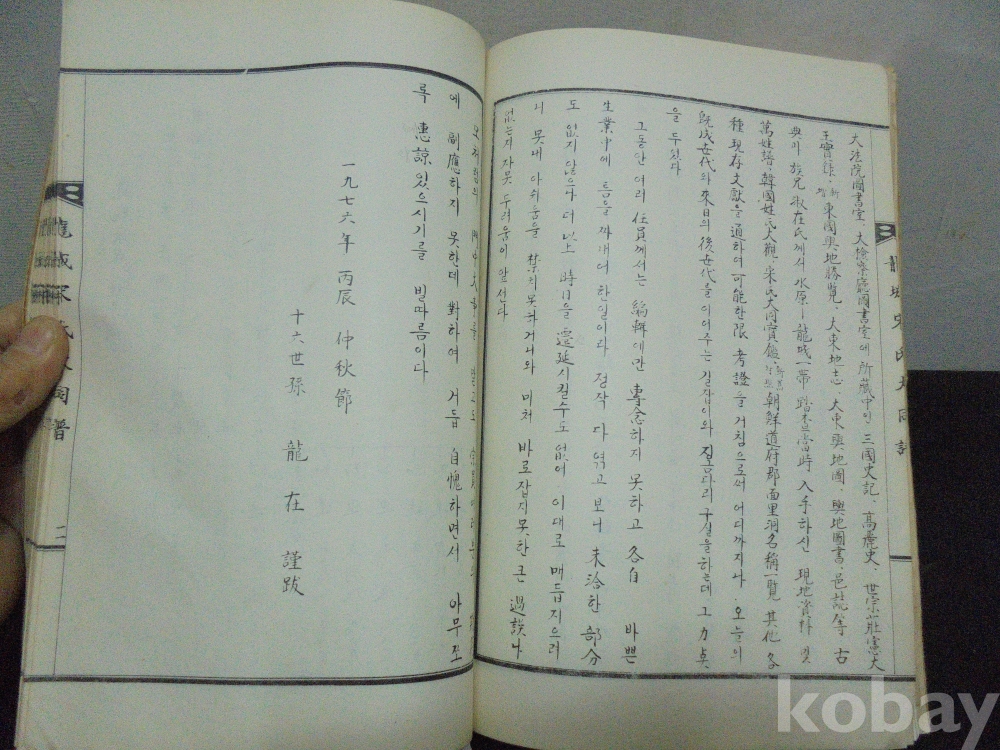 大法院圖書室、大檢察廳圖書室에 所藏中인 三國史記、高麗史、世宗莊憲大
王實錄、新增 東國輿地勝覽、大東地志、大東輿地圖、輿地圖書、邑誌等 古
典과 族兄 在氏께서 水原—龍城一帶 踏査當時 入手하신 現地資料 및
萬姓譜、韓國姓氏大觀、宋氏大同寶鑑、朝鮮道府郡面里洞名稱一覽 其他 各
種 現存文獻을 通하여 可能한限 考證을 거침으로써 어디까지나 오늘의
旣成世代와 來日의 後世代를 이어주는 길잡이와 징검다리 구실을하는데 그 力点
을 두었다
그동안 여러 任員께서는 編輯에만 專念하지 못하고 各自 바쁜
生業中에 틈을 짜내어 한일이라 정작 다 엮고 보니 未洽한 部分
도 없지 않으나 더 以上 時日을 遷延시킬수도 없어 이대로 매듭지으려
니 못내 아쉬움을 禁치못하거니와 미처 바로잡지못한 큰 過誤나
없는지 자못 두려움이 앞선다
에 副應하지 못한데 對하여 거듭 自愧하면서 아무쪼
록 惠諒있으시기를 빌따름이다
一九七六年 丙辰 仲秋節
十六世孫 龍在 謹跋
龍城宋氏大同譜
二
龍城宋氏大同譜
kobay